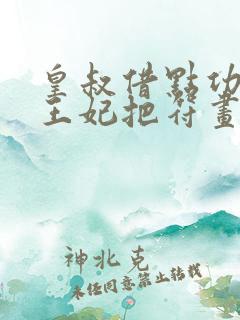 皇叔借點功
王妃把符畫
神北克
未經同意禁止轉載